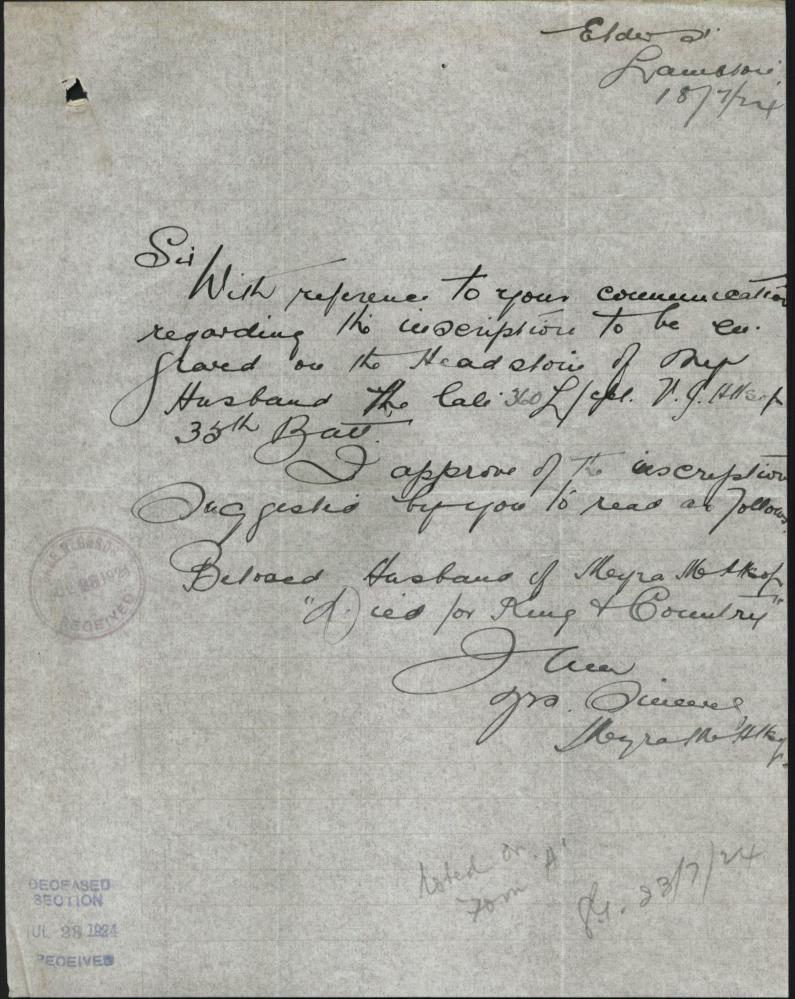 Elder St
Lambton
18/7/24
Sir
With reference to your communication
regarding the inscription to be en-
graved on the Headstone of My
Husband The late 360 L/cpl. V. J.
35th Batt.
I approve of the inscription
Suggested by you to read as follows
Beloved Husband of Meyra M
"Died for King & Country"
I am
yrs. Sincerely
Meyra M
Noted on Form "A"
23/7/24
RECEIVED
DECEASED
SECTION
JUL 23 1924
RECEIVED